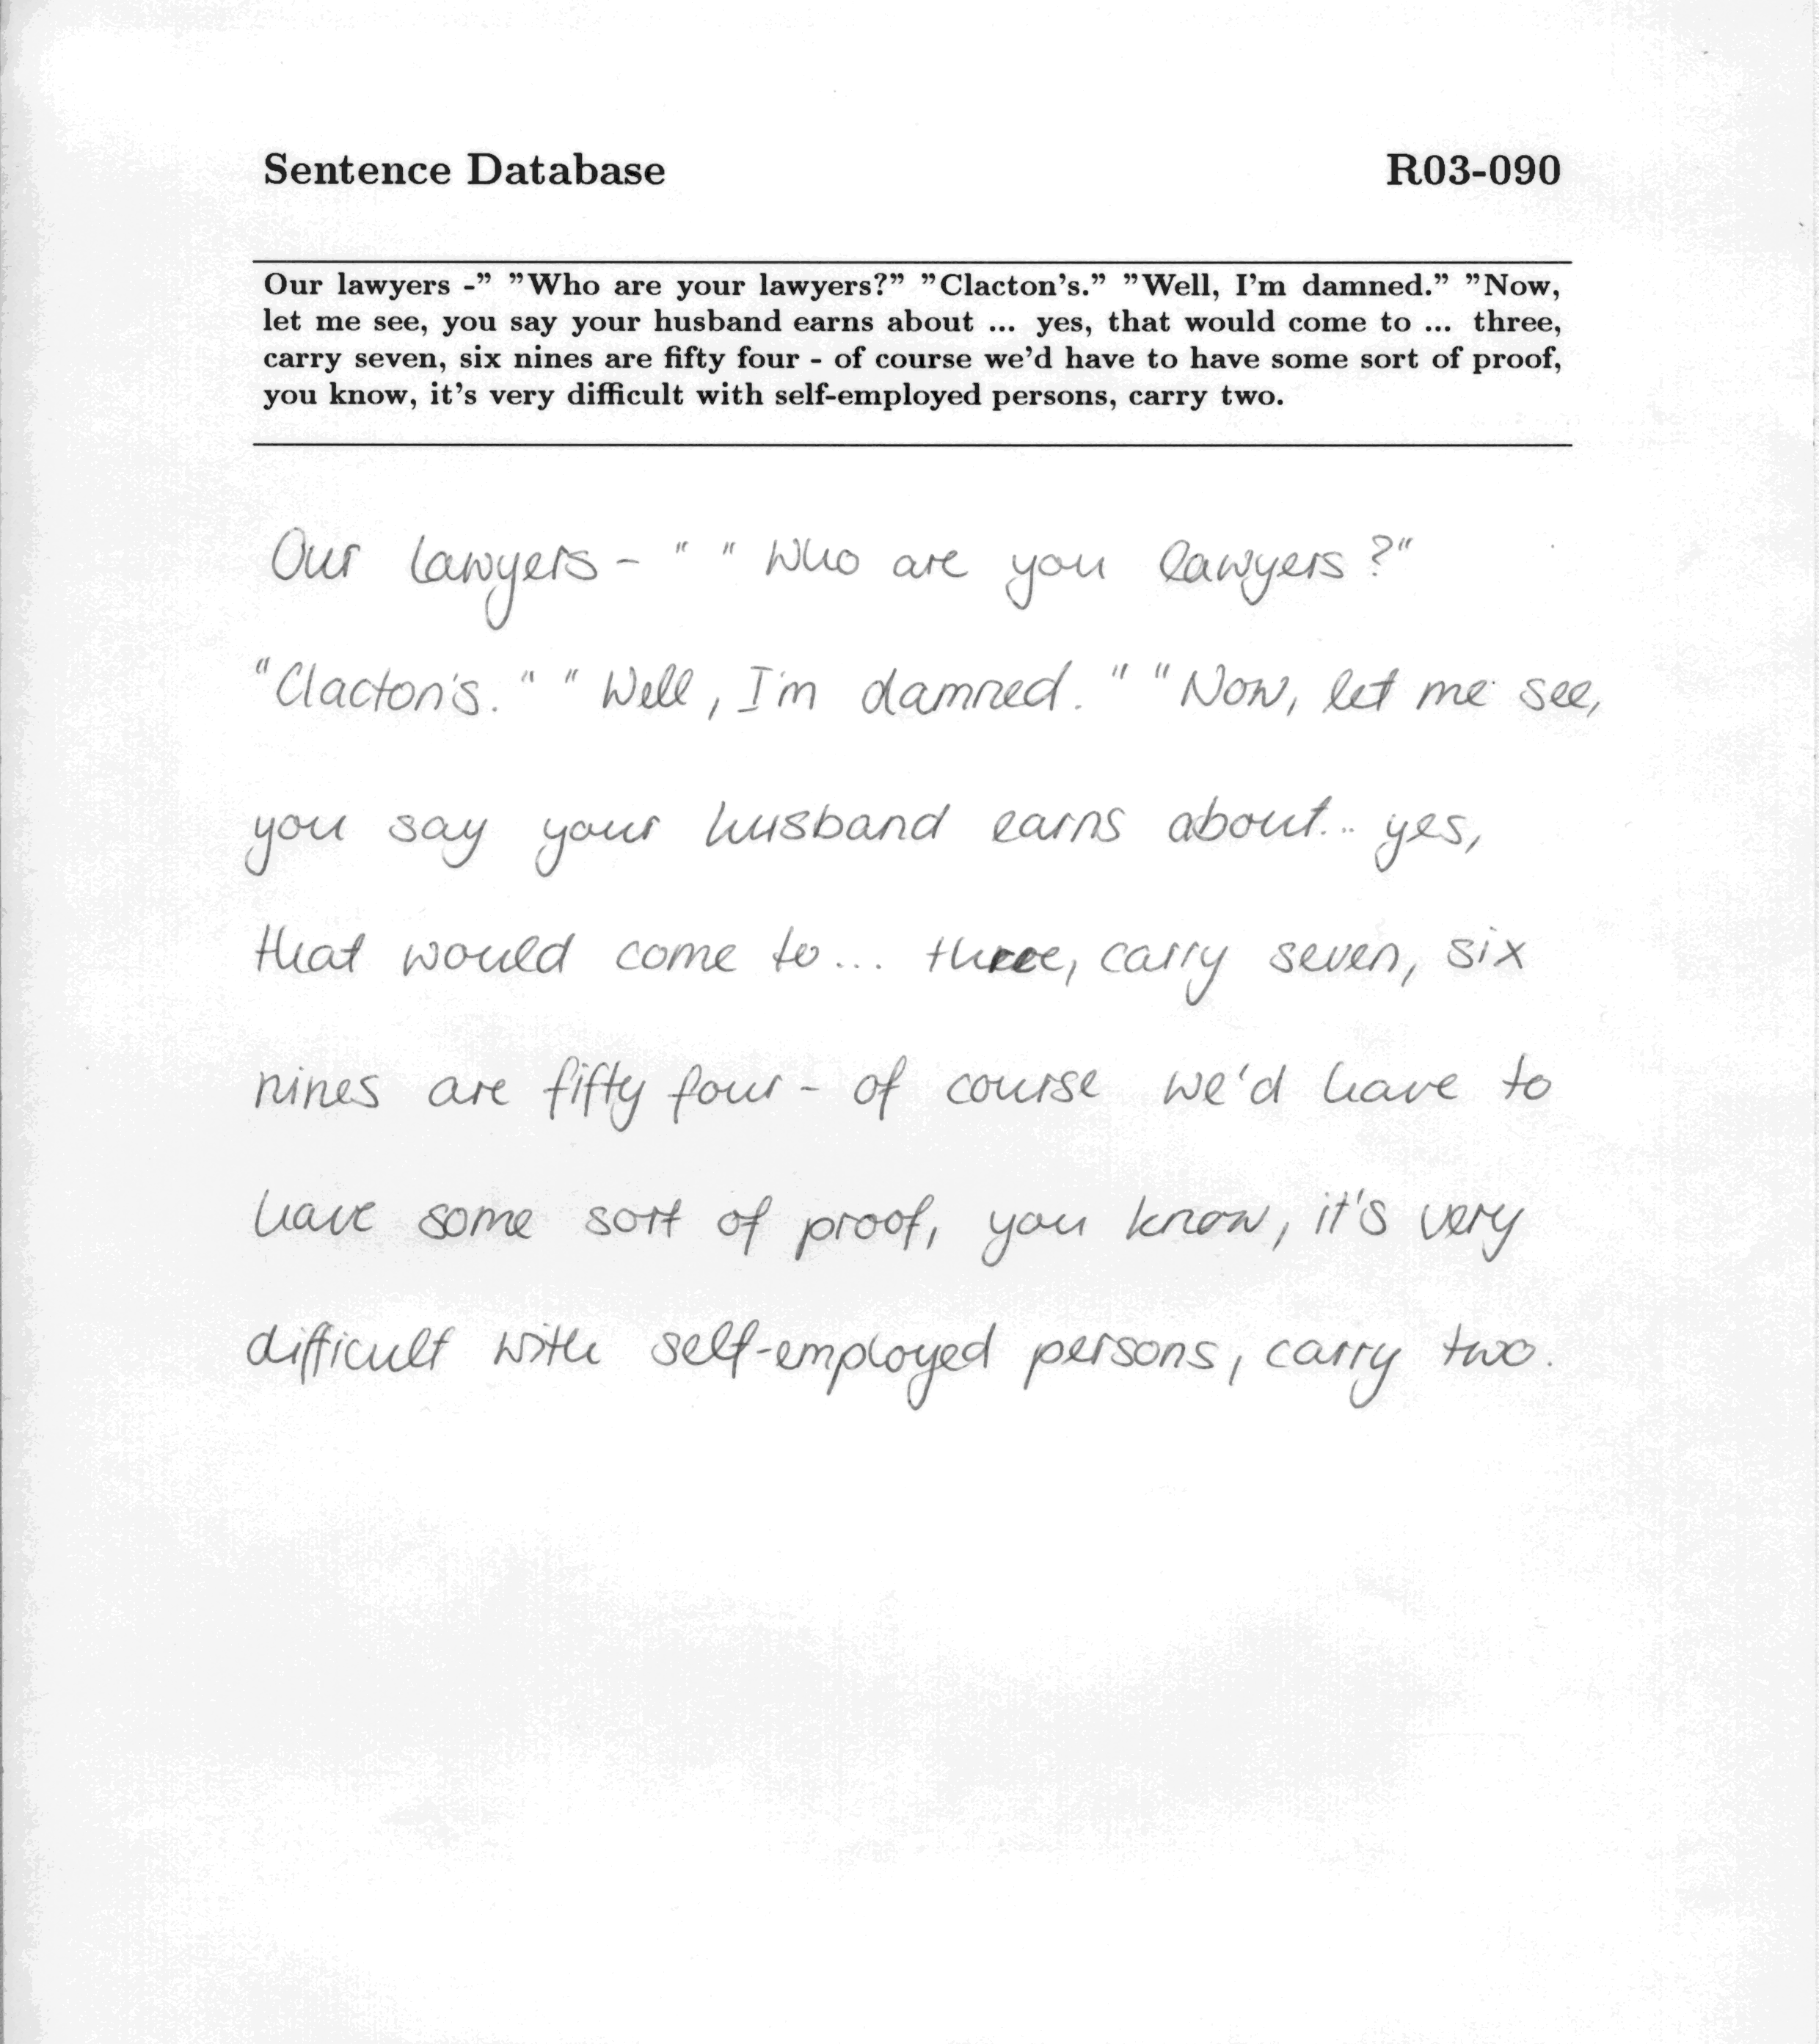 Sentence Database R03-090
Our lawyers -” ”Who are your lawyers?” ”Clacton’s.” ”Well, I’m damned.” ”Now,
let me see, you say your husband earns about ... yes, that would come to ... three,
carry seven, six nines are fifty four - of course we’d have to have some sort of proof,
you know, it’s very difficult with self-employed persons, carry two.
Our lawyers - " " Who are you lawyers ?"
"Clacton's. " " Well, I'm damned. " "Now, let me see,
you say your husband earns about... yes,
that would come to ... three, carry seven, six
nines are fifty four - of course we'd have to
have some sort of proof, you know, it's very
difficult with self-employed persons, carry two.